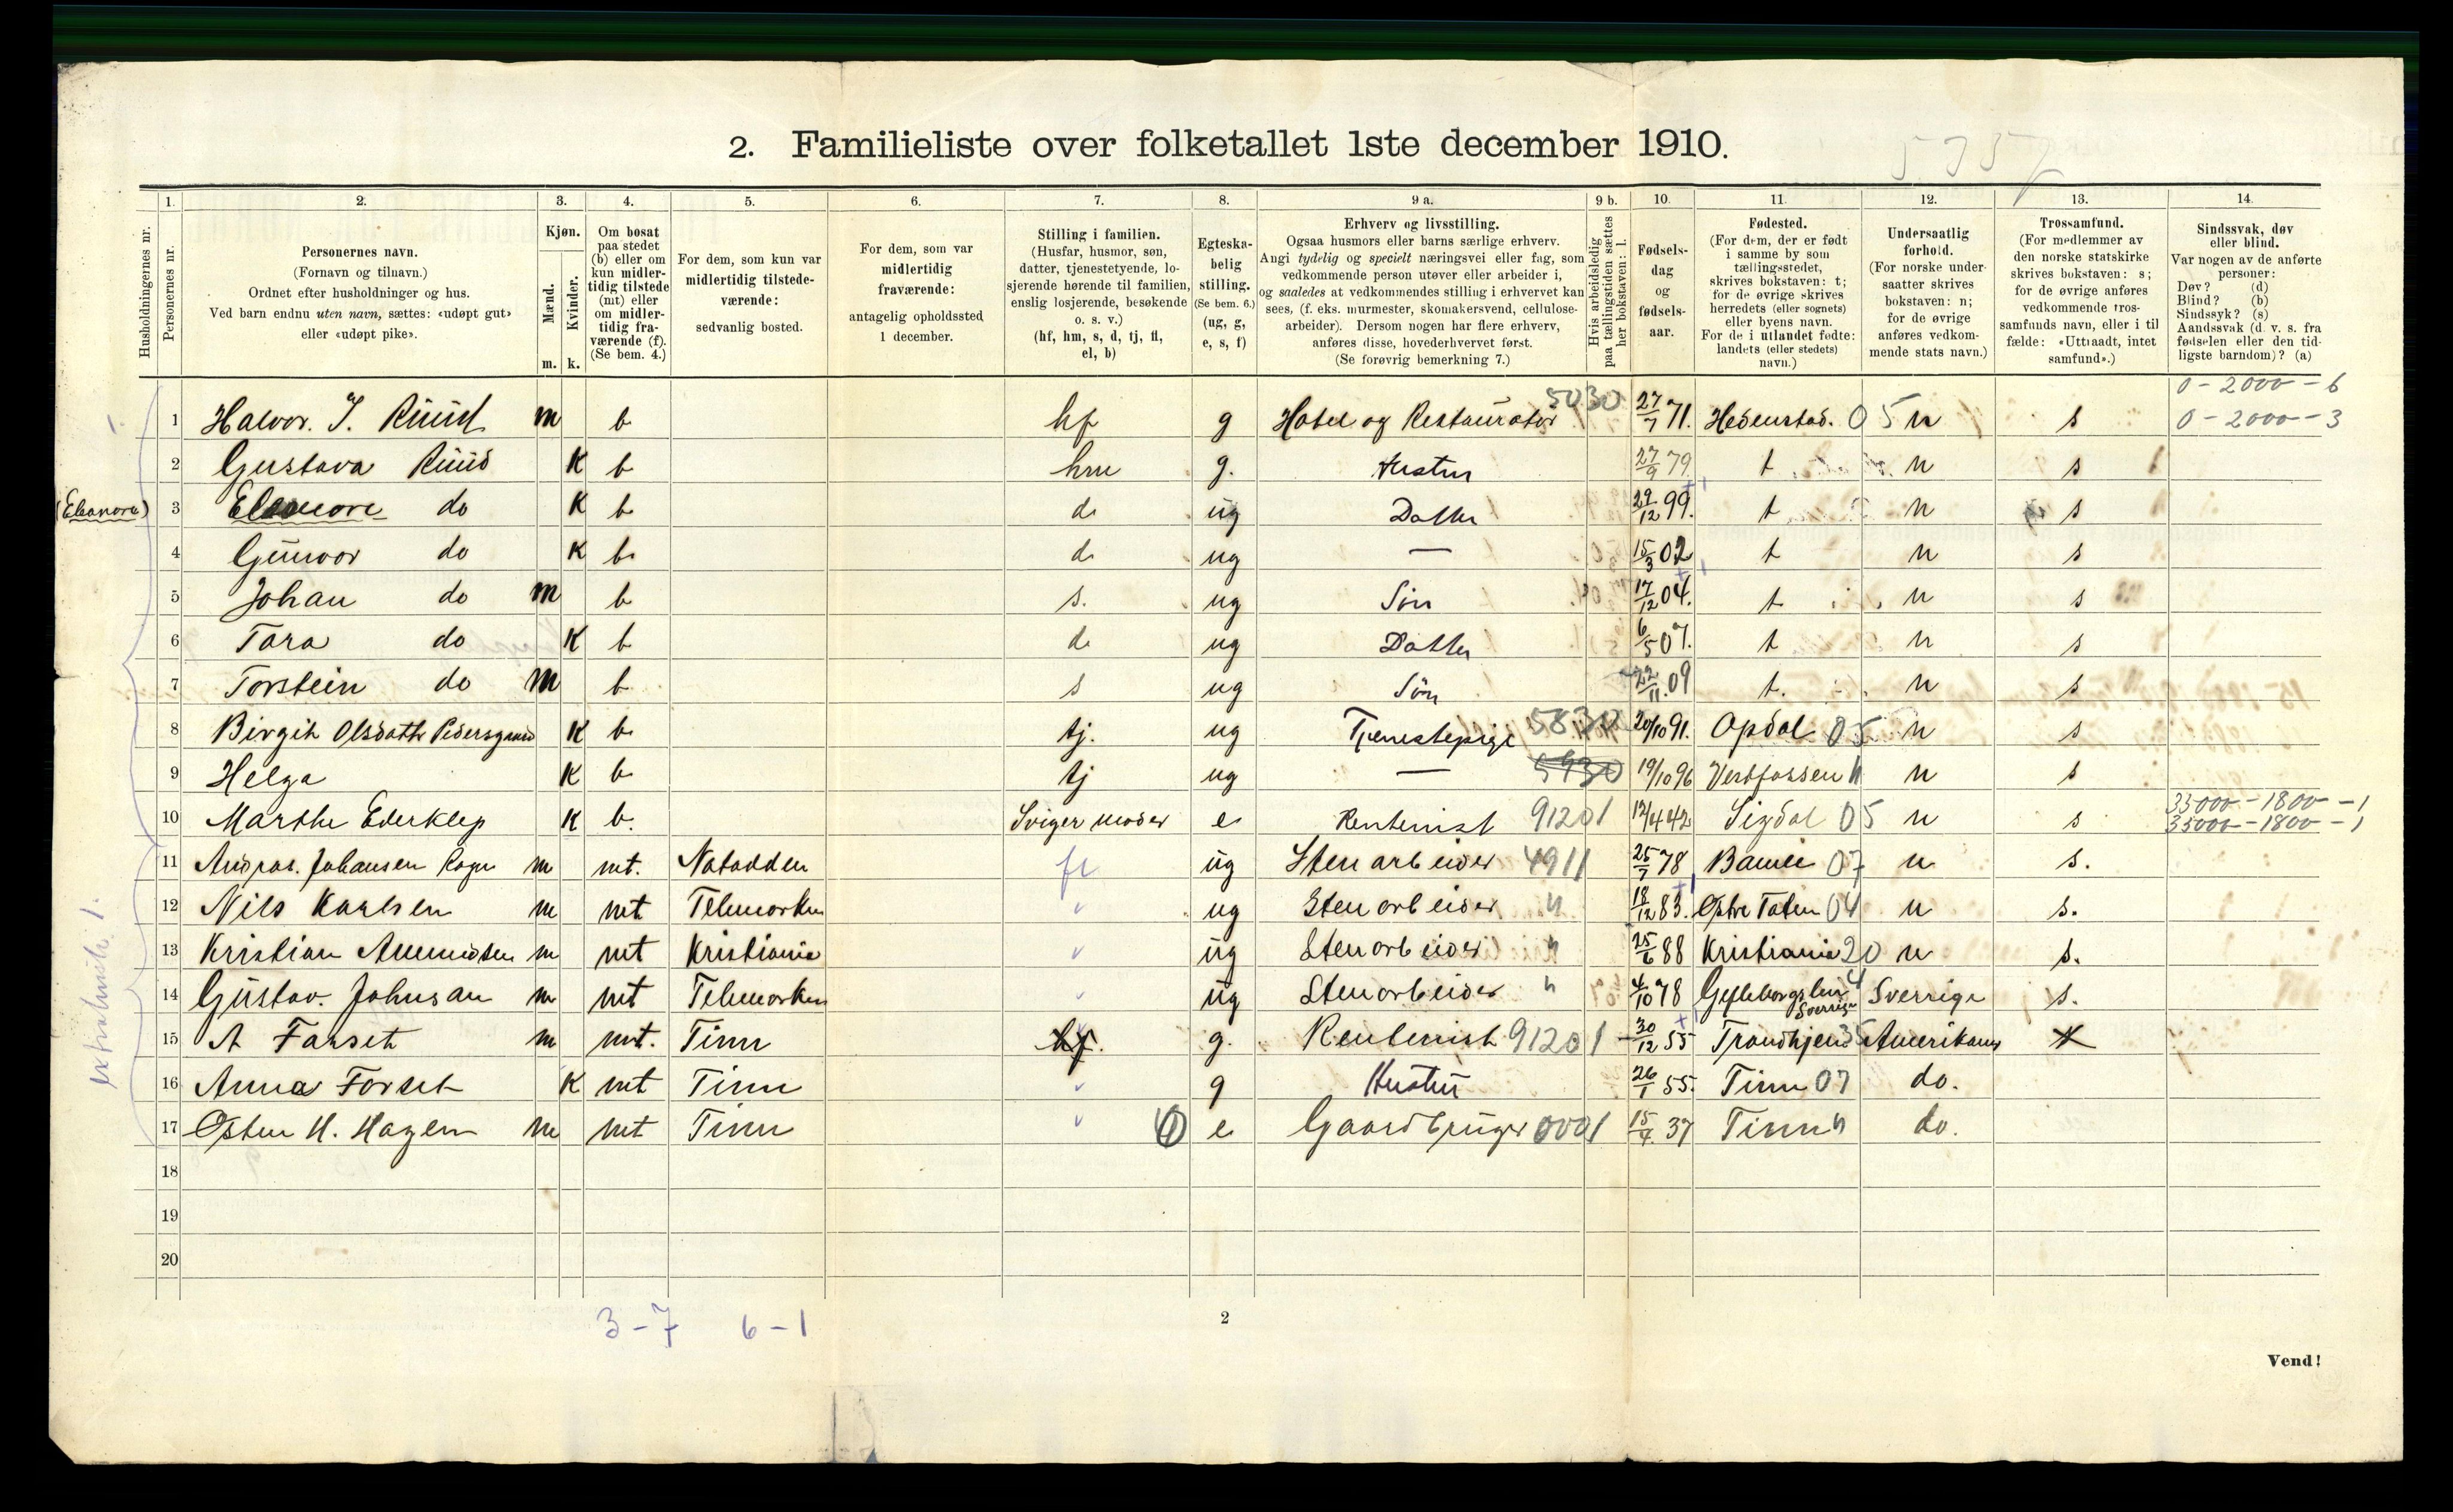 2. Familieliste over folketallet 1ste december 1910.
1. 2. 3. 4. 5. 6. 7. 8. 9 a. 9 b. 10. 11. 12. 13. 14.
Husholdningernes nr.
Personernes nr.
Personernes navn.
(Fornavn og tilnavn.)
Ordnet efter husholdninger og hus.
Ved barn endnu uten navn, sættes: «udøpt gut»
eller «udøpt pike».
Kjøn.
Mænd.
Kvinder.
m. k.
Om bosat
paa stedet
(b) eller om
kun midler-
tidig tilstede
(mt) eller
om midler-
tidig fra-
værende (f).
(Se bem. 4.)
For dem, som kun var
midlertidig tilstede-
værende:
sedvanlig bosted.
For dem, som var
midlertidig
fraværende:
antagelig opholdssted
1 december.
Stilling i familien.
(Husfar, husmor, søn,
datter, tjenestetyende, lo-
sjerende hørende til familien,
enslig losjerende, besøkende
o. s. v.)
(hf, hm, s, d, tj, fl,
el, b)
Egteska-
belig
stilling.
(Se bem. 6.)
(ug, g,
e, s, f)
Erhverv og livsstilling.
Ogsaa husmors eller barns særlige erhverv.
Angi tydelig og specielt næringsvei eller fag, som
vedkommende person utøver eller arbeider i,
og saaledes at vedkommendes stilling i erhvervet kan
sees, (f. eks. murmester, skomakersvend, cellulose-
arbeider). Dersom nogen har flere erhverv,
anføres disse, hovederhvervet først.
(Se forøvrig bemerkning 7.)
Hvis arbeidsledig
paa tællingstiden sættes
her bokstaven: l.
Fødsels-
dag
og
fødsels-
aar.
Fødested.
(For dem, der er født
i samme by som
tællingsstedet,
skrives bokstaven: t;
for de øvrige skrives
herredets (eller sognets)
eller byens navn.
For de i utlandet fødte:
landets (eller stedets)
navn.)
Undersaatlig
forhold.
(For norske under-
saatter skrives
bokstaven: n;
for de øvrige
anføres vedkom-
mende stats navn.)
Trossamfund.
(For medlemmer av
den norske statskirke
skrives bokstaven: s;
for de øvrige anføres
vedkommende tros-
samfunds navn, eller i til
fælde: «Uttraadt, intet
samfund».)
Sindssvak, døv
eller blind.
Var nogen av de anførte
personer:
Døv? (d)
Blind? (b)
Sindssyk? (s)
Aandssvak (d. v. s. fra
fødselen eller den tid-
ligste barndom)? (a)
0 - 2000 - 6
1 Halvor. T. Ruud m b hf g Hotel og Restauratør 5030 27/7 71. Hedenstad. 05 n s 0 - 2000 - 3
2 Gustava Ruud K b hm g. Hustru 27/9 79 t n s
(Eleonora) 3 Eleonore do K b d ug Datter 29/12 99. t n s
4 Gunvor do K b d ug — 15/3 02 t n s
5 Johan do m b s. ug Søn 17/12 04. t n s
6 Tora do K b d ug Datter 6/5 07. t n s
7 Torstein do m b s ug Søn 22/11 09 t. n s
8 Birgit Olsdatter Pedersgaard K b tj. ug Tjenestepige 20/10 91. Opdal 05 n s
9 Helga K b tj ug — 19/10 96 Vestfossen n s
33000 - 1800 - 1
10 Marthe Ederklep K b. Sviger moder e Rentenist 91201 12/4 42 Sigdal 05 n s 33000 - 1800 - 1
11 Johansen m mt. Notodden ug Stenarbeider 4911 25/7 78 Bamle 07 n s.
12 Nils Karlsen m mt Telemarken ug Stenarbeider 18/12 83. Østre Toten 04 n s.
13 Kristian Amundsen m mt Kristiania ug Stenarbeider 25/6 88 Kristiania 20 n s.
14 Gustav. Johnsan m mt Telemarken ug Stenarbeider 4/10 78 Gefleborgslen Sverrige Sverrige s.
15 A Forset m mt. Tinn hf. g. Rentenist 91201 30/12 55 Trondhjem 35 Amerikans
16 Anna Forset K mt Tinn g Hustru 26/1 55. Tinn 07 do.
17 Østen H. Hagen m mt Tinn e Gaardbruger 0001 15/4 37 Tinn do.
18
19
20
3 - 7 6 - 1
2
Vend!